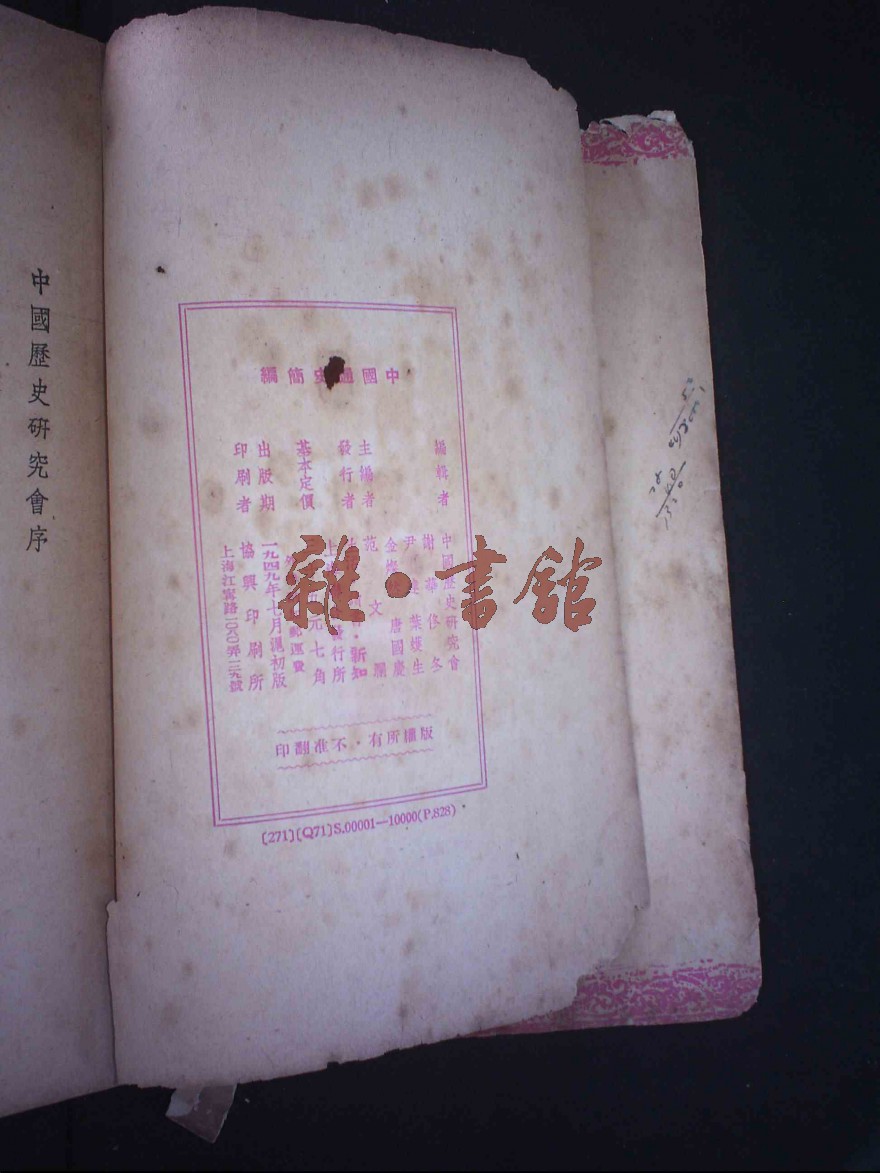 中國歷史研究會序
中國通史簡編
編輯者 中國歷史研究會
謝華 佟冬
尹 達 葉蠖生
金燦然 唐國慶
主編者 范文瀾
發行者 新知
發行所
基本定價 元七角
郵運費
出版期 一九四九年七月滬初版
印刷者 協興印刷所
上海江寧路一〇八〇弄一二九號
版權所有·不准翻印
(271)(Q71)S.00001—10000(P.828)
雜·書館